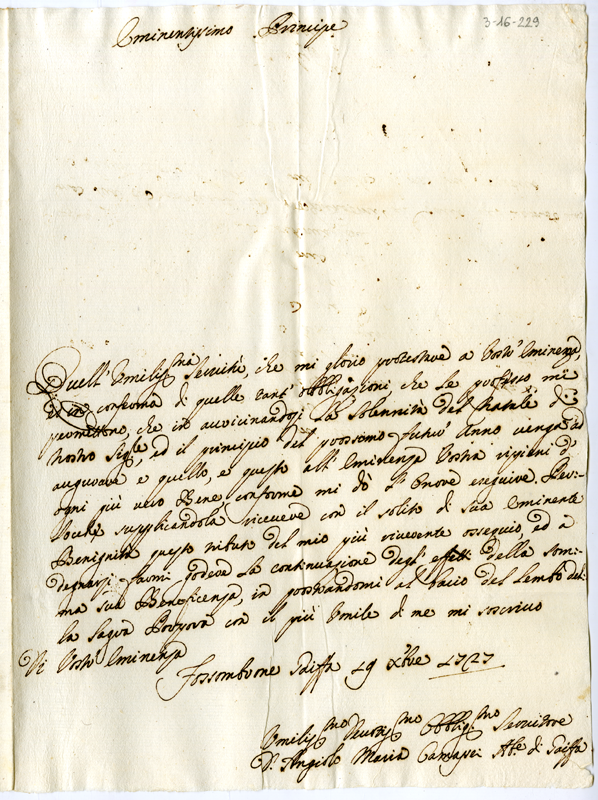 3-16-229
Eminentissimo Principe
Quell' Umiliss.ma Servitù, che mi glorio protestare a Vostr' Eminenza,
ed in conferma di quelle tant' obbligazioni che Le professo mi
permettono, che in avvicinandosi la Solennità del Natale di
Nostro Sig.re, ed il principio del prossimo futur' Anno venga ad
augurare e quello, e questo all' Eminenza Vostra ripieni d'
ogni più vero Bene, conforme mi dò l' Onore eseguire. Devi-
supplicandola ricevere con il solito di sua Eminente
Benignità questo tributo del mio più riverente ossequio, ed a
degnarsi farmi godere la continuazione degl' effetti della som-
ma sua Beneficenza, in prostrandomi al bacio del Lembo del-
la Sagra Porpora con il più Umile di me mi soscrivo
Di Vostr' Eminenza
Fossombrone 19 Xbre 1727
Umiliss.mo Obblig.mo Servitore
D. Angiolo Maria Ab.e di